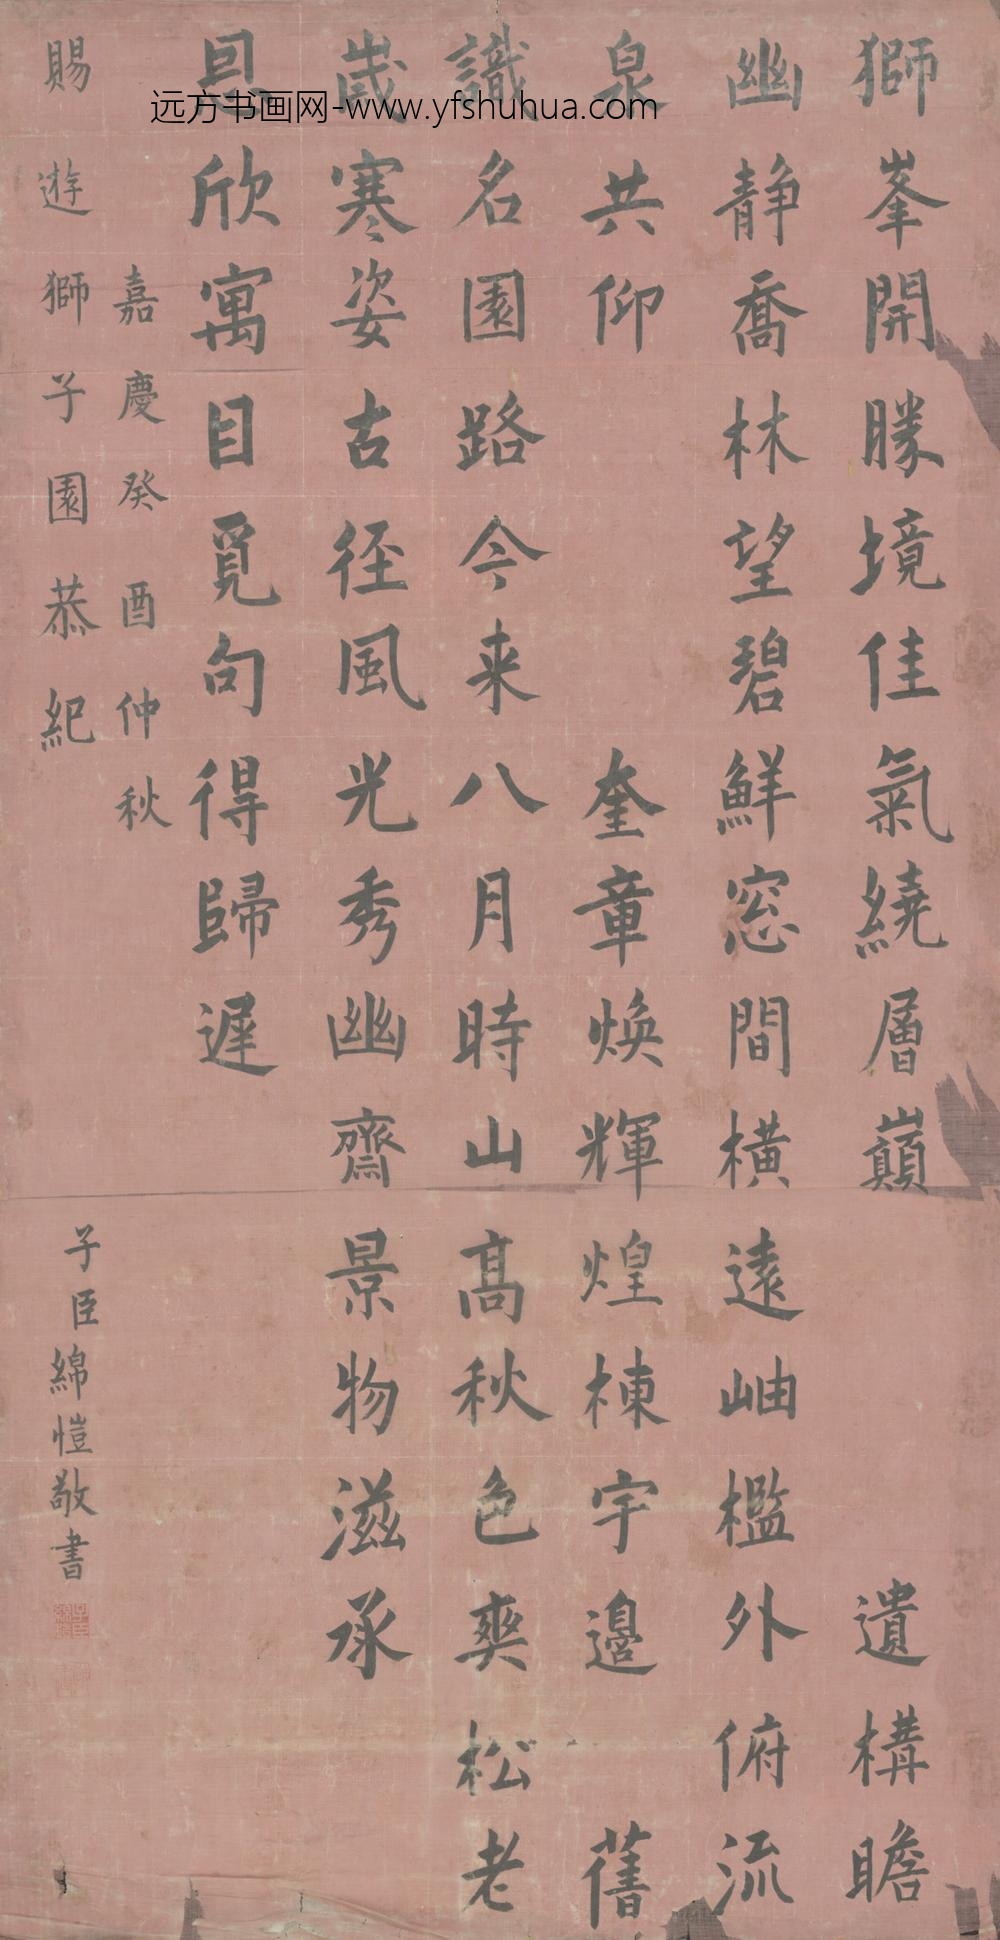 远方书画网-www.yfshuhua.com
獅峯開勝境佳氣繞層巔 遺構瞻
幽靜喬林望碧鮮窓間橫遠岫檻外俯流
泉共仰 奎章煥輝煌棟宇邉 舊
識名園路今来八月時山髙秋色爽松老
歲寒姿古徑風光秀幽齋景物滋承
恩欣寓目覓句得歸遲
嘉慶癸酉仲秋
賜遊獅子園恭紀
子臣綿愷敬書